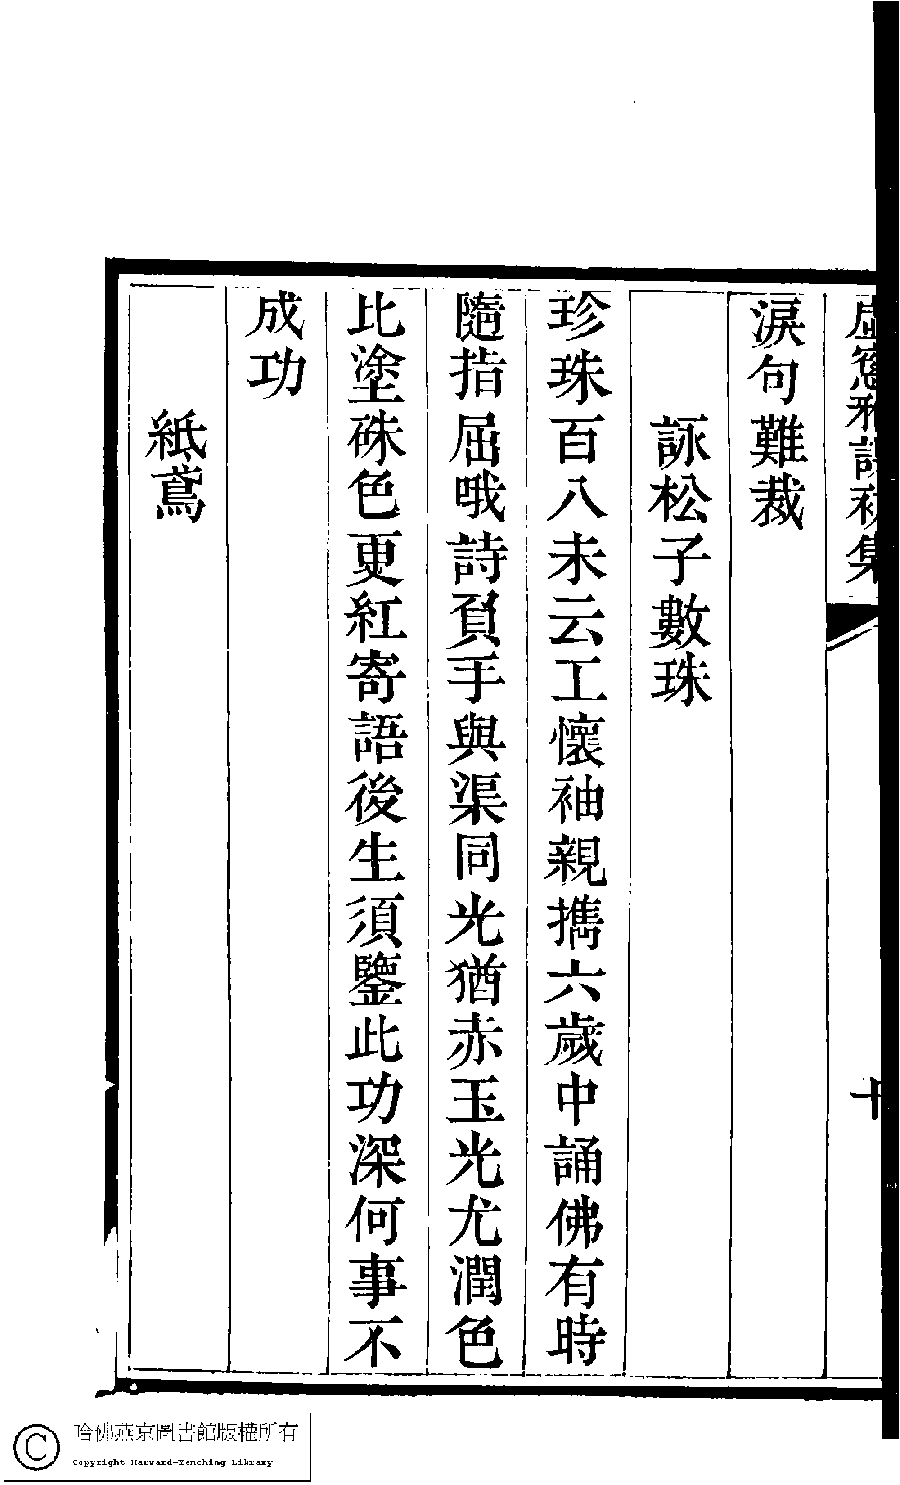 虛窻雅課初集
十
淚句難裁
詠松子數珠
珍珠百八未云工懷袖親攜六歲中誦佛有時
隨指屈哦詩負手與渠同光猶赤玉光尤潤色
比塗硃色更紅寄語後生須鑒此功深何事不
成功
紙鳶
哈佛燕京圖書館版權所有
Copyright Harvard-Yenching Library